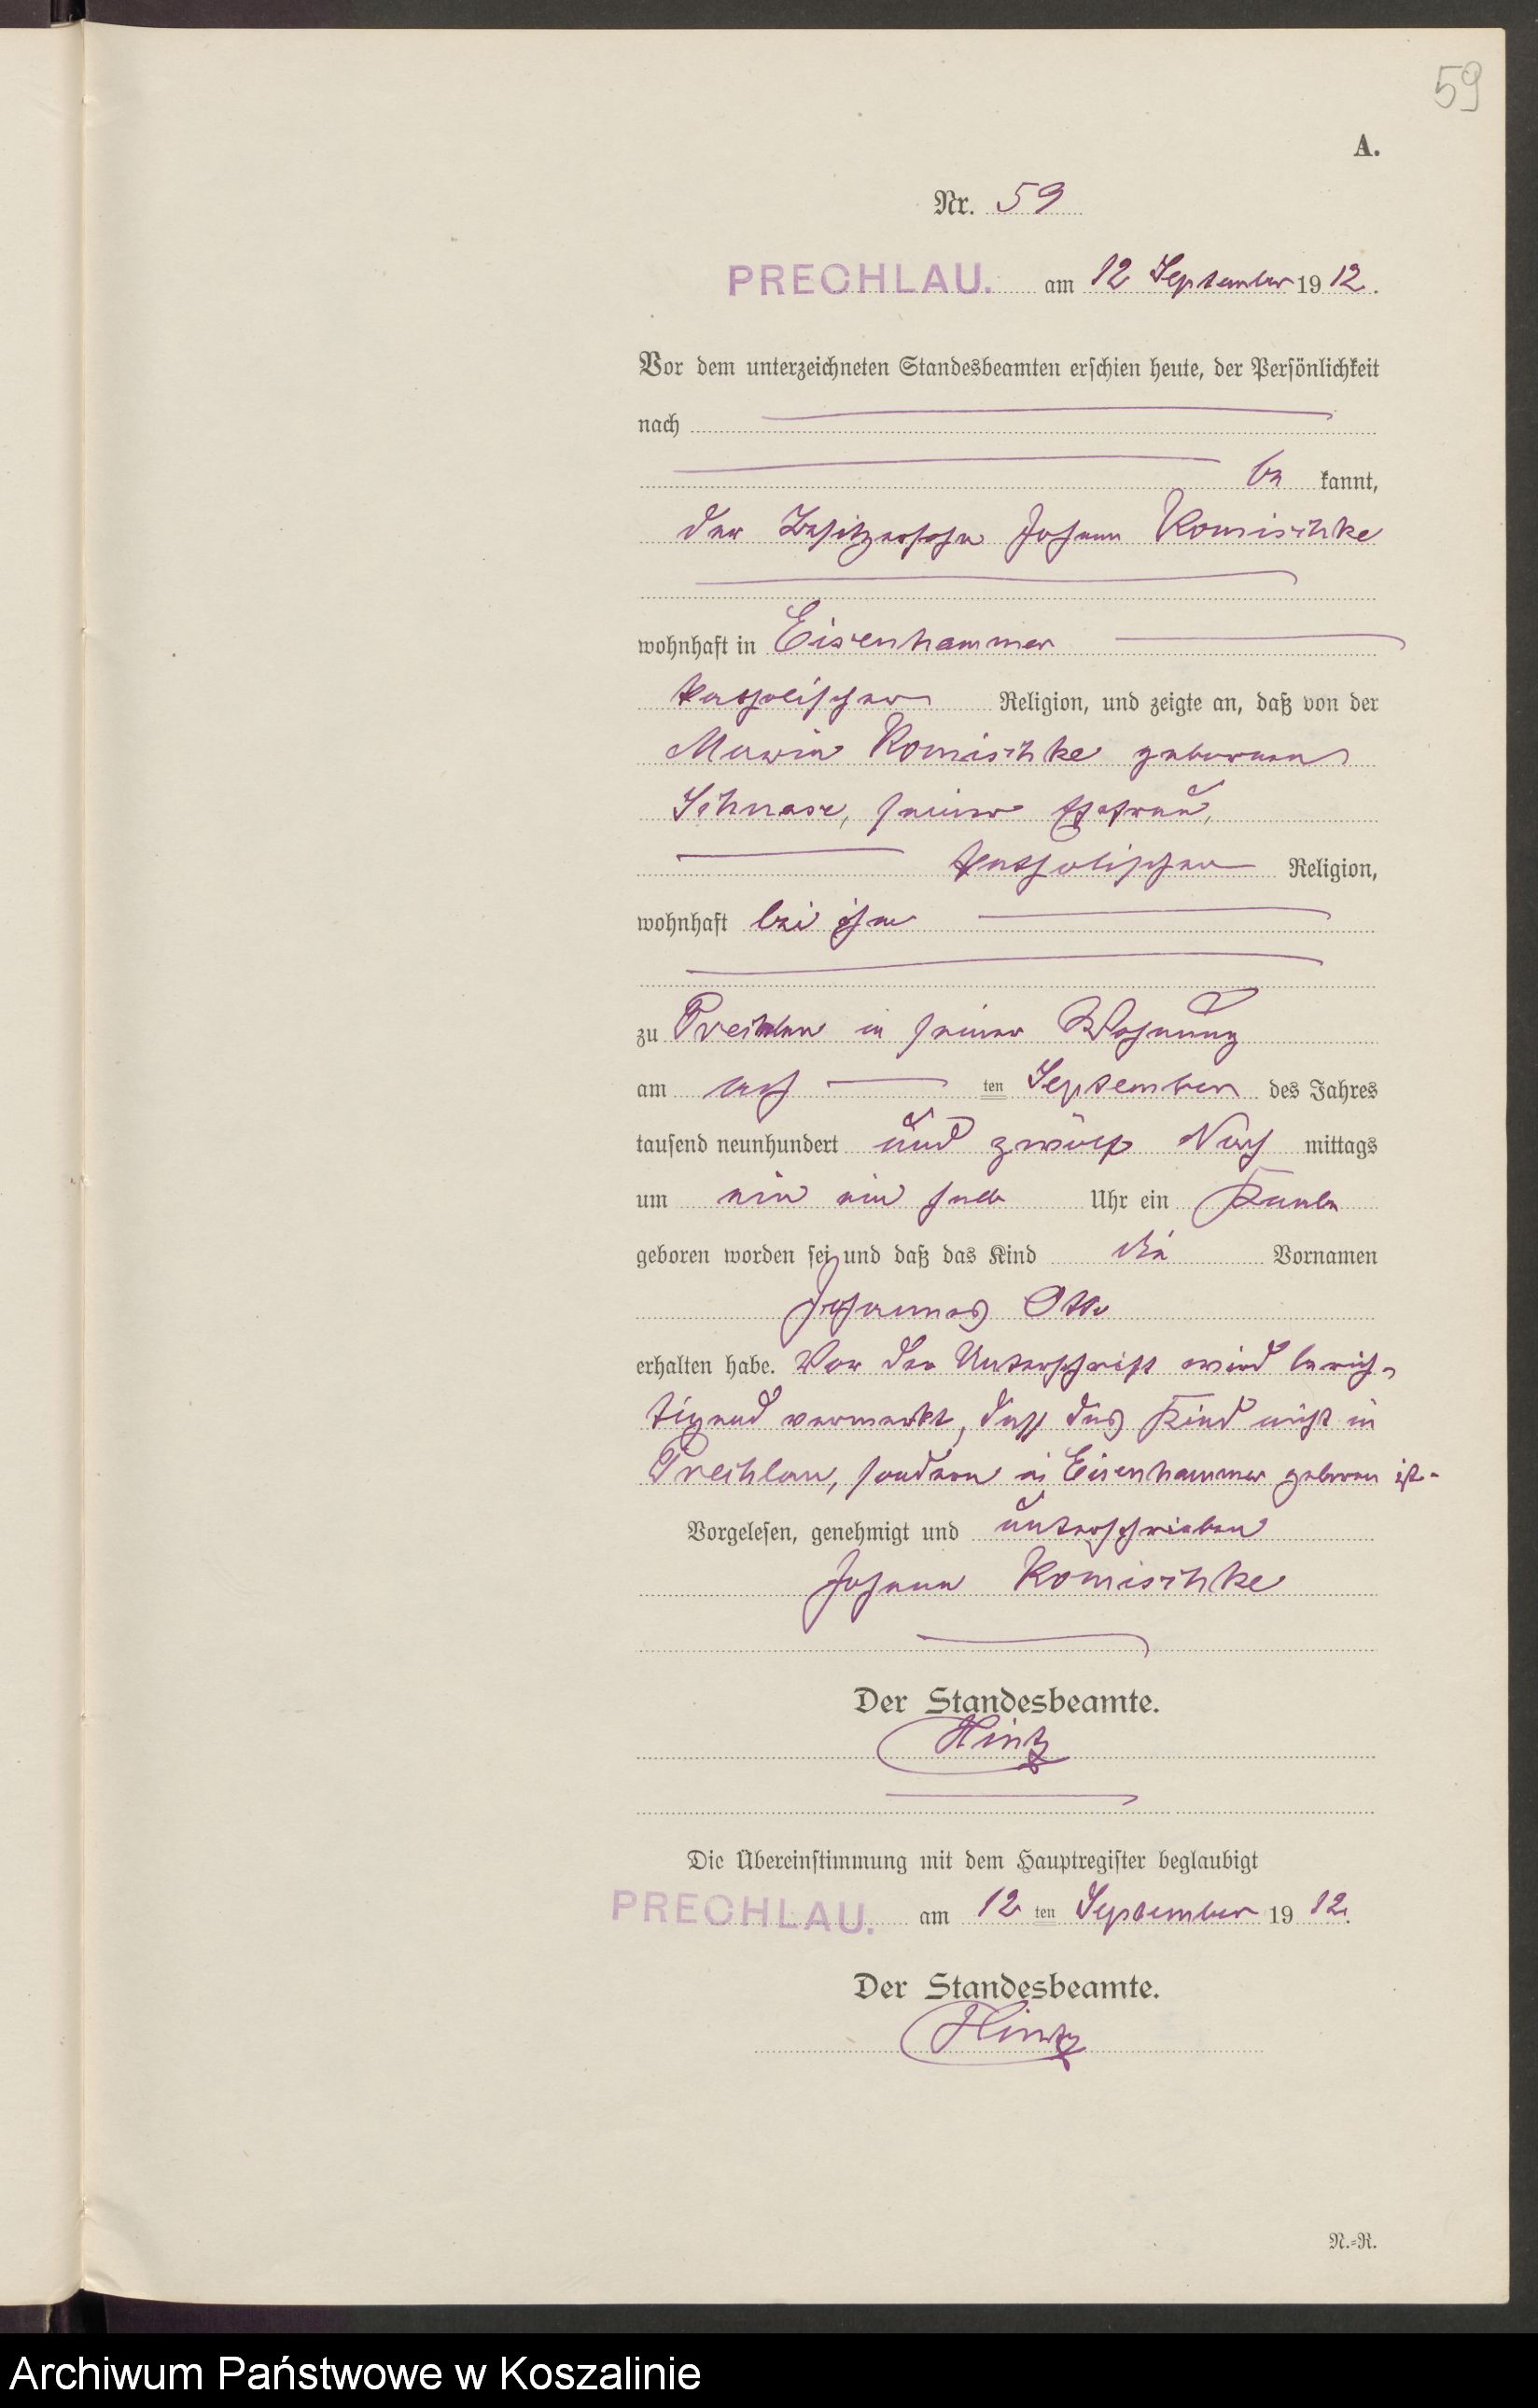 59
A.
Nr. 59
PRECHLAU. am 12 September 1912.
Vor dem unterzeichneten Standesbeamten erschien heute, der Persönlichkeit
nach
be kannt,
der Besitzersohn Johann Komischke
wohnhaft in Eisenhammer
katholischer Religion, und zeigte an, daß von der
Maria Komischke geborenen
Schnase, seiner Ehefrau,
katholischer Religion,
wohnhaft bei ihm
zu Prechlau in seiner Wohnung
am acht ten September des Jahres
tausend neunhundert und zwölf Nach mittags
um ein ein halb Uhr ein Knabe
geboren worden sei und daß das Kind die Vornamen
Johannes Otto
erhalten habe. Vor der Unterschrift wird berich-
tigend vermerkt, dass das Kind nicht in
Prechlau, sondern in Eisenhammer geboren ist.
Vorgelesen, genehmigt und unterschrieben
Johann Komischke
Der Standesbeamte.
Hintz
Die Übereinstimmung mit dem Hauptregister beglaubigt
PRECHLAU. am 12 ten September 1912.
Der Standesbeamte.
Hintz
N.=R.
Archiwum Państwowe w Koszalinie